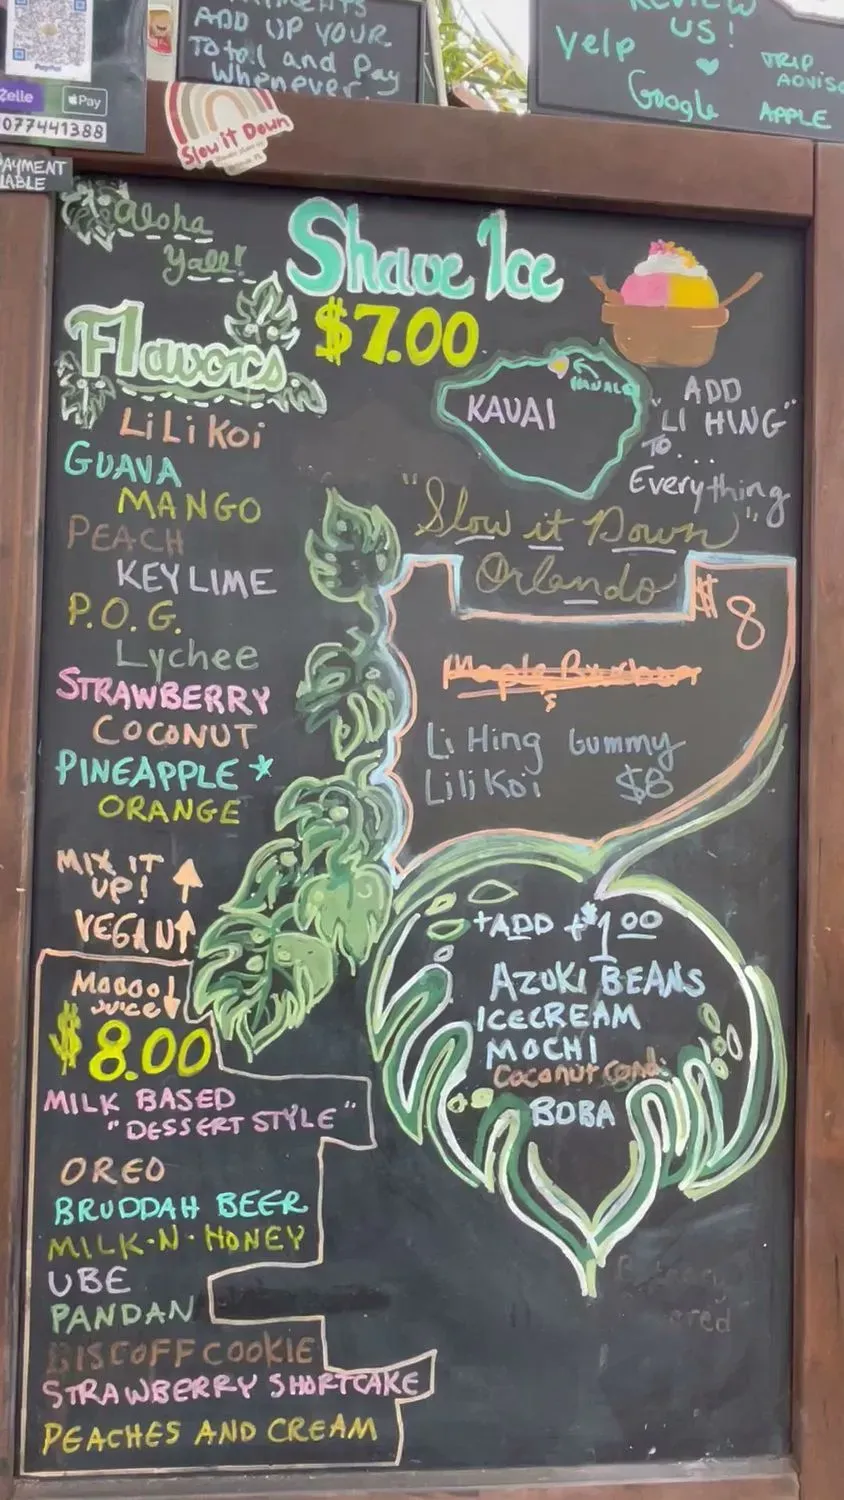 ADD UP YOUR
Total and Pay
Whenever.
REVIEW
US!
Yelp
TRIP
ADVISO
Google
APPLE
PayPal
Zelle
Pay
077441388
PAYMENT
LABLE
Slow it Down
Aloha
Yall!
Shave Ice
$7.00
Flavors
KAUAI
ADD
"LI HING"
TO....
Everything
LiLiKoi
GUAVA
MANGO
PEACH
KEY LIME
P.O.G.
Lychee
STRAWBERRY
COCONUT
PINEAPPLE *
ORANGE
MIX IT
UP!
VEGAN
"Slow it Down"
Orlando
$8
Li Hing Gummy
LiliKoi $8
+ADD +$1.00
AZUKI BEANS
ICECREAM
MOCHI
Coconut Cond.
BOBA
JUICE
$8.00
MILK BASED
"DESSERT STYLE"
OREO
BRUDDAH BEER
MILK·N·HONEY
UBE
PANDAN
BISCOFF COOKIE
STRAWBERRY SHORTCAKE
PEACHES AND CREAM